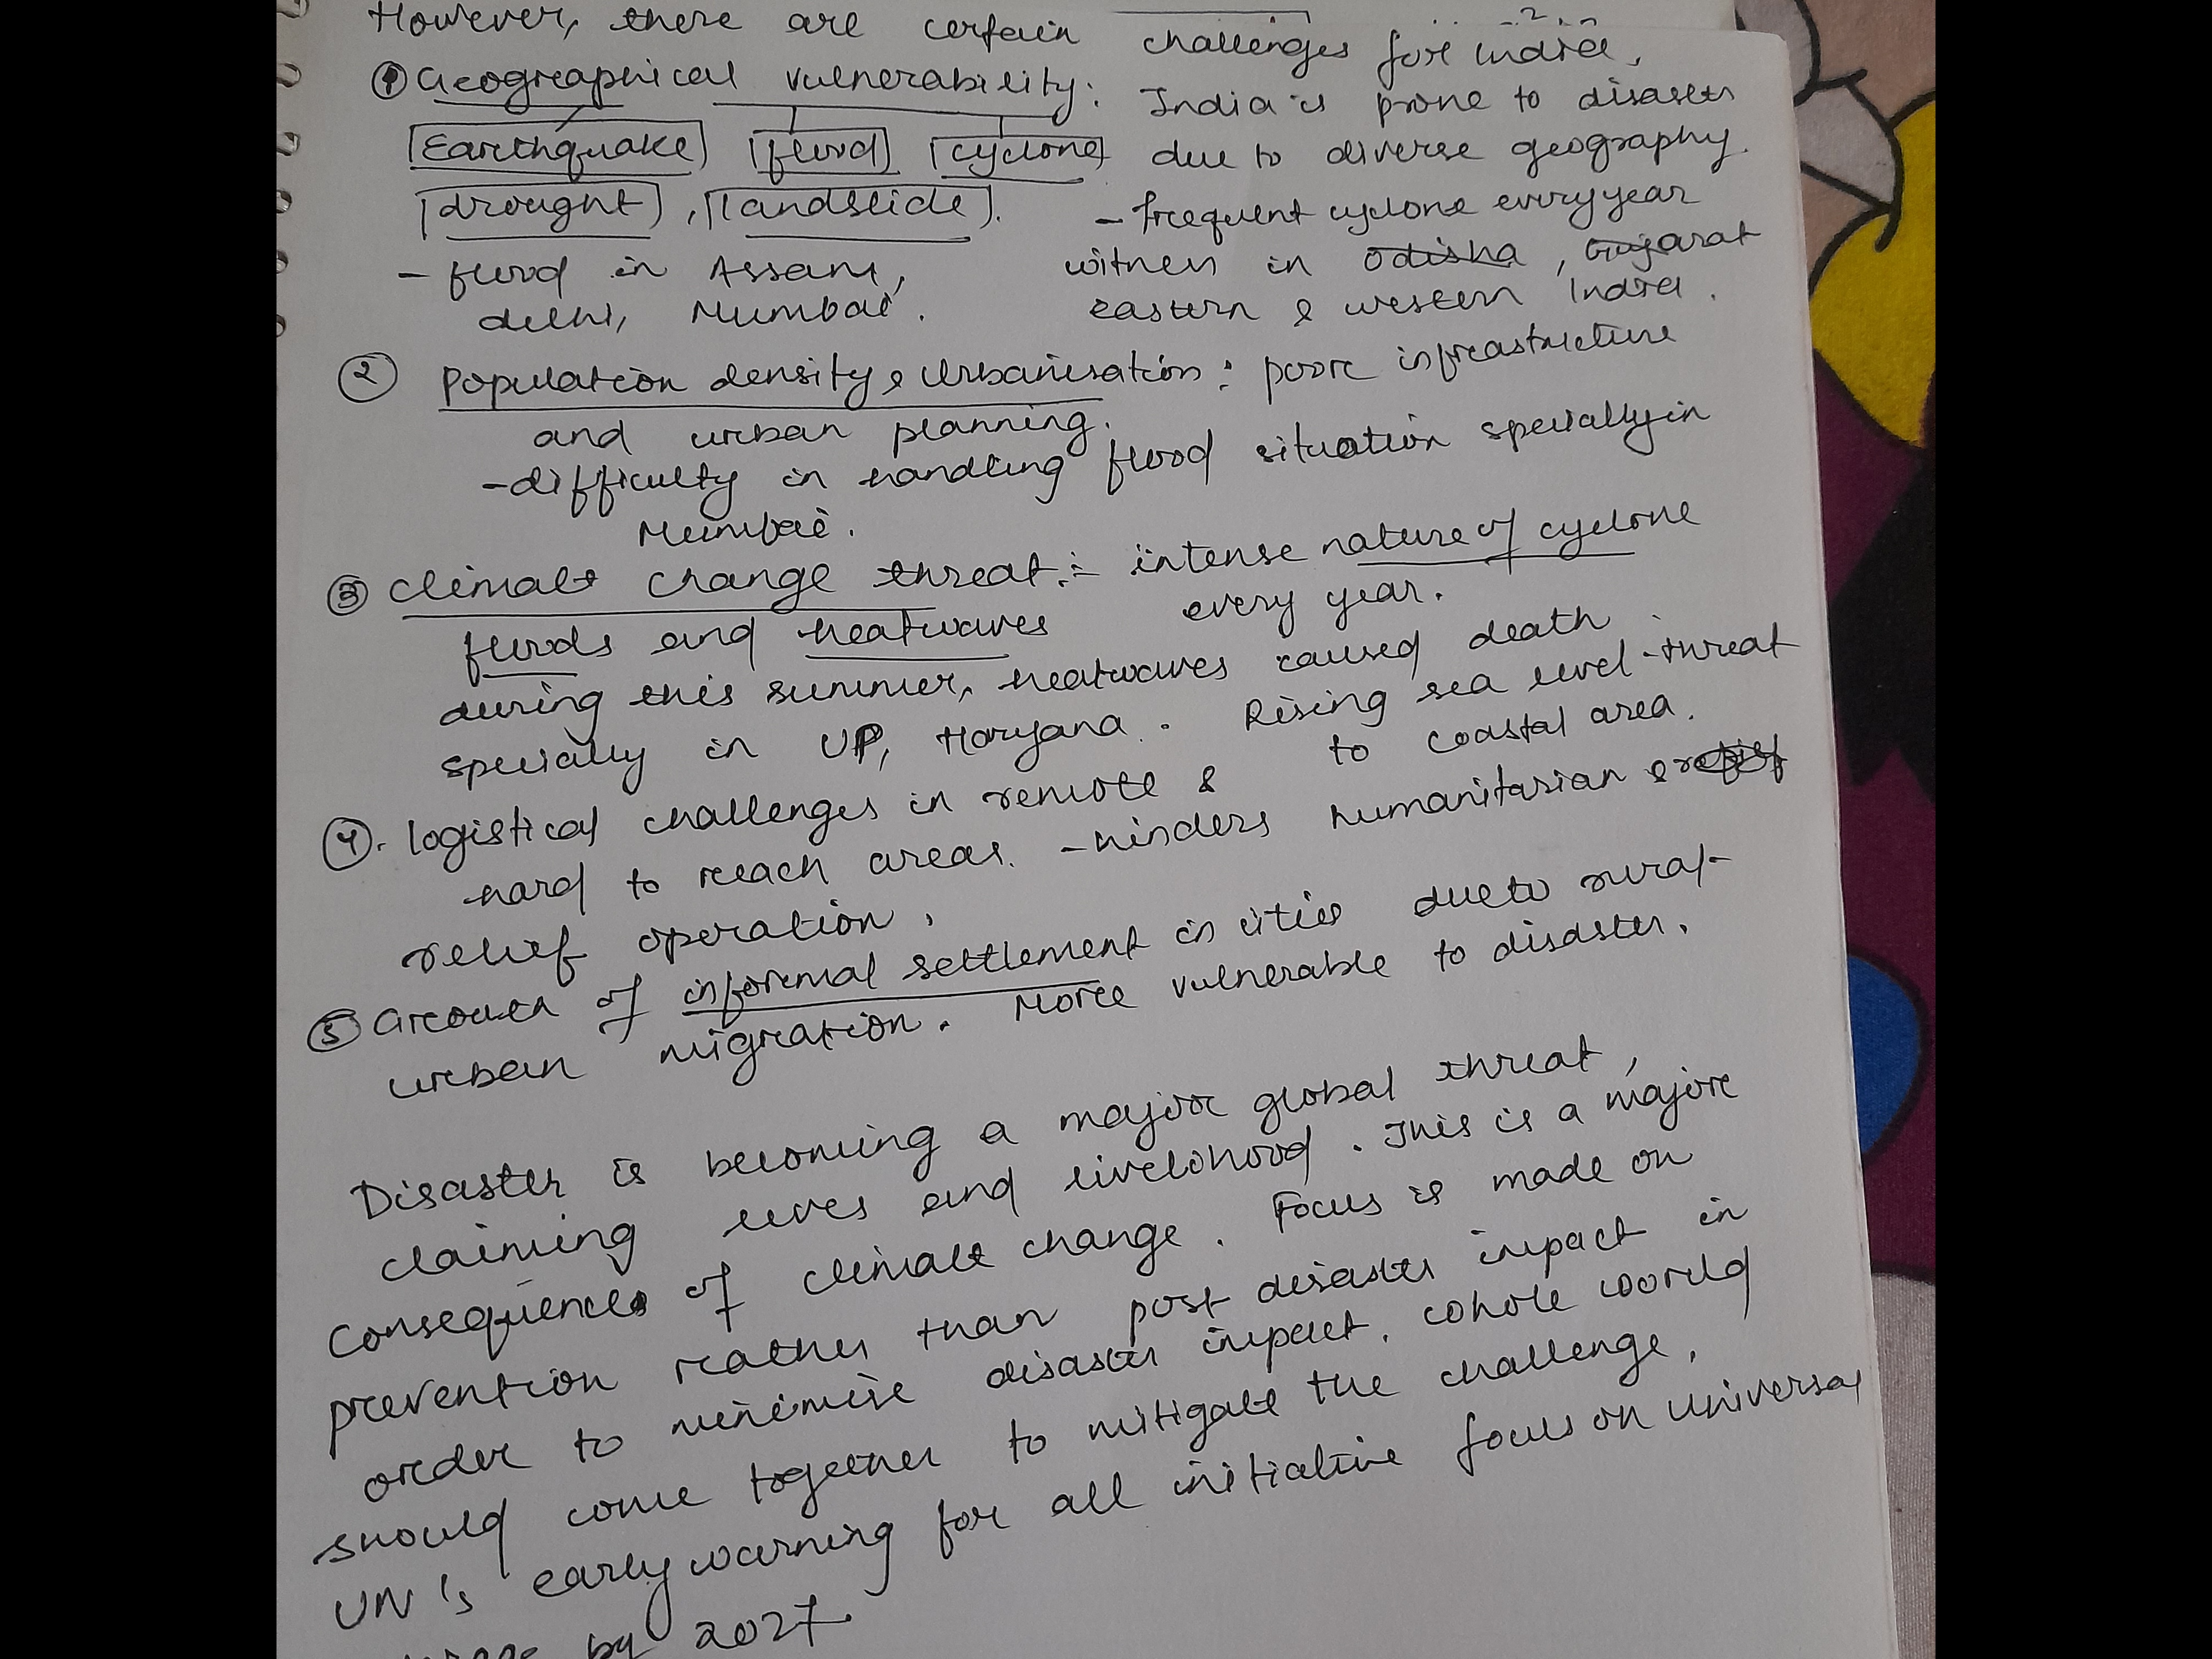 However, there are certain challenges for India,
① Geographical vulnerability: India is prone to disaster
Earthquake flood cyclone due to diverse geography.
drought, landslide. - frequent cyclone every year
- flood in Assam, witness in Odisha, Gujarat
delhi, Mumbai. eastern & western India.
② Population density & Urbanisation: poor infrastructure
and urban planning.
- difficulty in handling flood situation specially in
Mumbai.
③ Climate change threat:- intense nature of cyclone
floods and heatwaves every year.
during this summer, heatwaves caused death
specially in UP, Haryana. Rising sea level-threat
to coastal area.
④. logistical challenges in remote &
hard to reach areas. - hinders humanitarian &
relief operation.
⑤ Growth of informal settlement in cities due to rural-
urban migration. More vulnerable to disaster.
Disaster is becoming a major global threat,
claiming lives and livelihood. This is a major
consequences of climate change. Focus is made on
prevention rather than post disaster impact in
order to minimise disaster impact. whole world
should come together to mitigate the challenge,
UN's early warning for all initiative focus on universal
by 2027